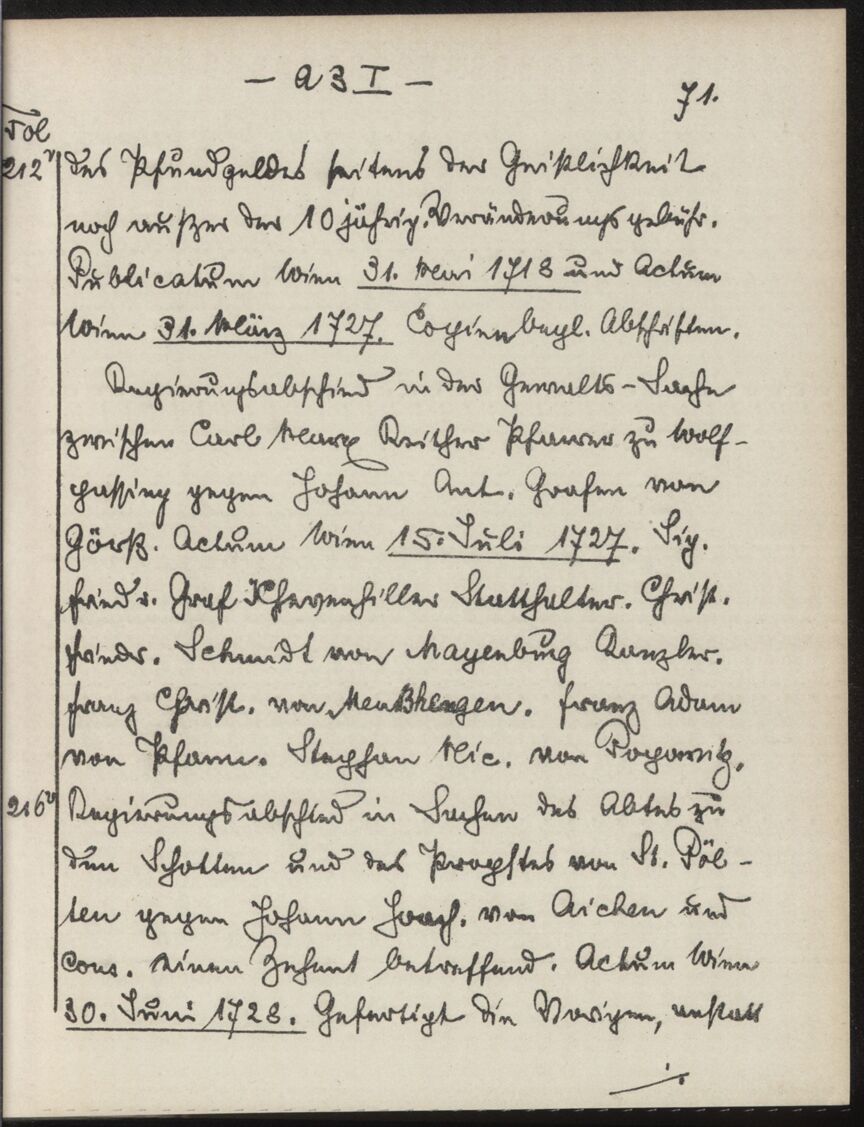 — A 3 I —
71.
Fol
212v des Pfundgeldes seitens der Geistlichkeit
noch außer der 10 jährig. Veränderungsgebühr.
Publicatum Wien 31. Mai 1718 und Actum
Wien 31. März 1727. Copien begl. Abschriften.
Regierungsabschied in der Gewalts-Sache
zwischen Carl Marx Reither Pfarrer zu Wolf-
passing gegen Johann Ant. Grafen von
Görß. Actum Wien 15. Juli 1727. Sig.
friedr. Graf Khevenhiller Statthalter. Christ.
friedr. Schmidt von Mayenburg Kanzler.
franz Christ. von. franz Adam
von Pfann. Stephan Nic. von
216v Regierungsabschied in Sachen des Abtes zu
den Schotten und des Propstes von St. Pöl-
ten gegen Johann Joach. von Aichen und
Cons. einen Zehent betreffend. Actum Wien
30. Juni 1728. Gefertigt die Vorigen, anstatt
./.